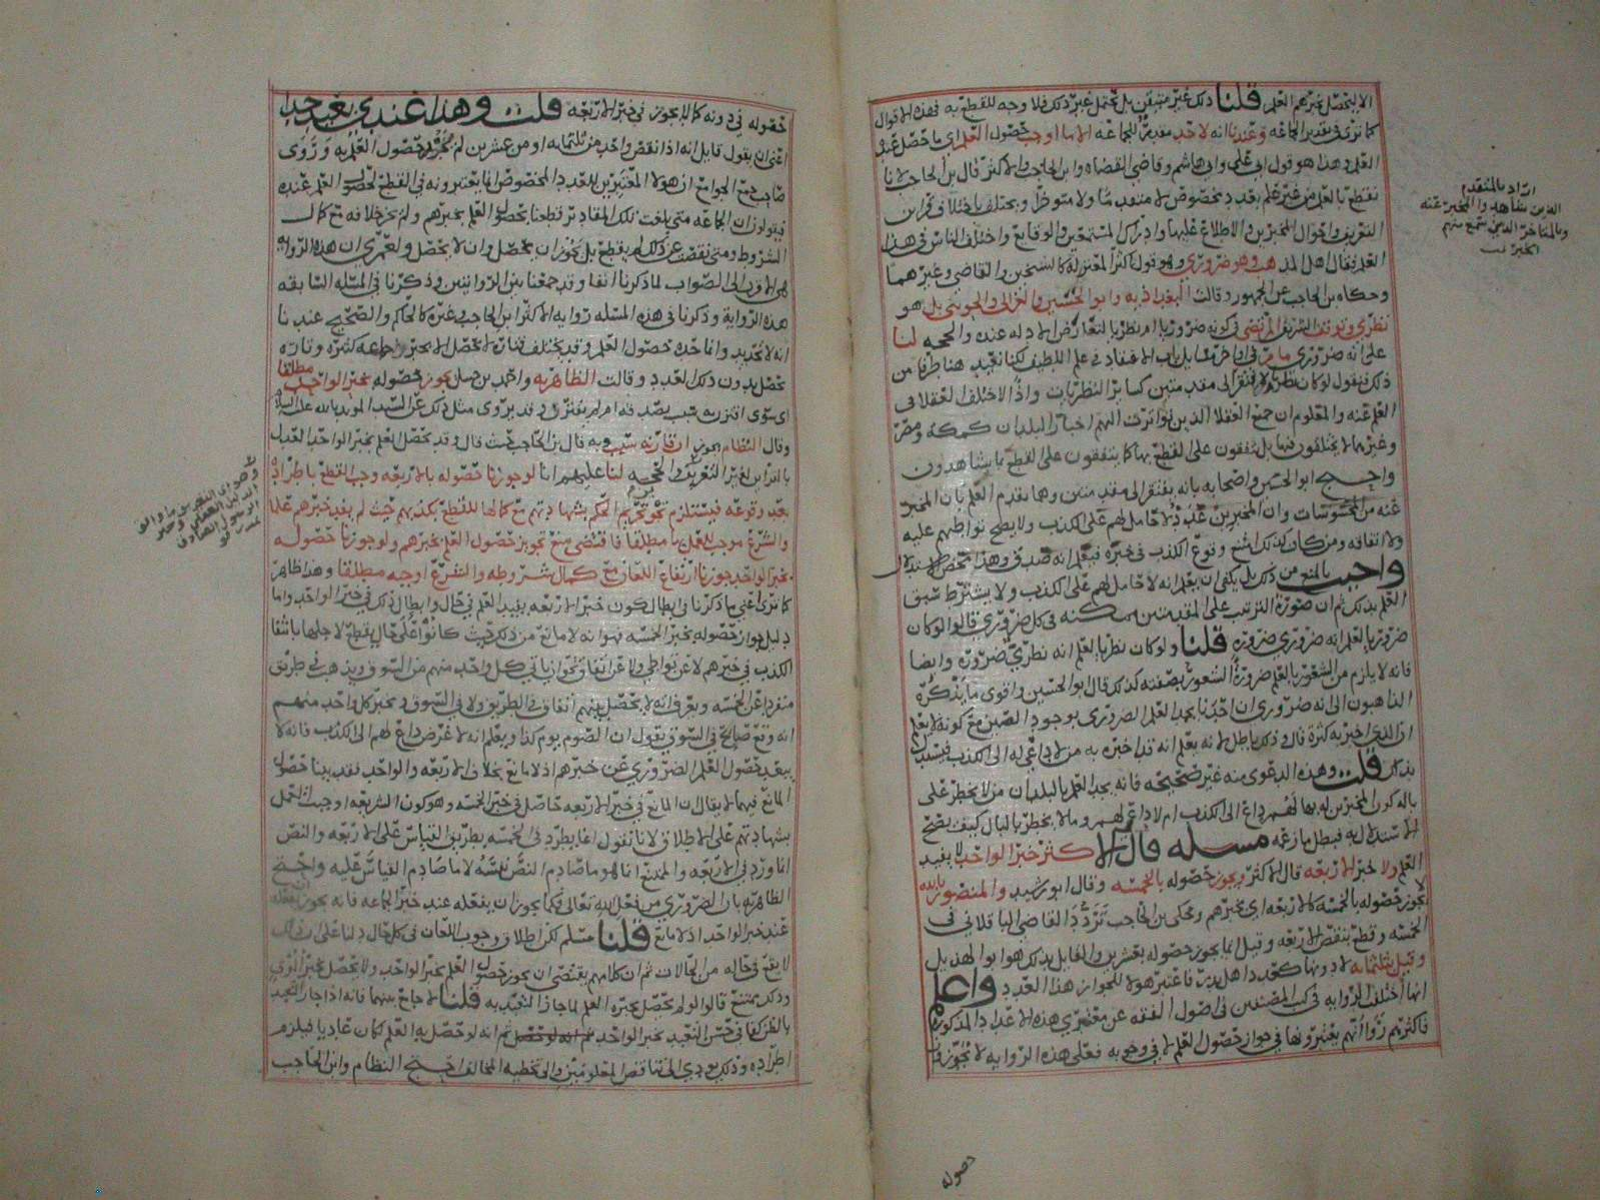 الا ليحصل بخبرهم العلم قلنا ذلك غير متيقن بل محتمل غير ذلك فلا وجه للقطع به فهذه الاقوال
كما ترى في تقدير الجماعه وعندنا انه لا حد مقدر للجماعه الا ما اوجب حصوله العلم اي ما حصل عنده
العلم وهذا هو قول ابي علي وابي هاشم وقاضي القضاه وابن الحاجب والاكثر قال بن الحاجب لانا
نقطع بالعلم من غير علم بعدد مخصوص لا متقدما ولا متاخرا ويختلف باختلاف قراين
التعريف واحوال المخبرين والاطلاع عليها وادراك المستمعين والوقايع واختلف الناس في هذا
العلم فقال اهل المذهب وهو ضروري وهو قول اكثر المعتزله كالشيخين والقاضي وغيرهما
وحكاه بن الحاجب عن الجمهور وقالت البغداذيه وابو الحسين والغزالي والجويني بل هو
نظري وتوقف الشريف المرتضى في كونه ضروريا ام نظريا لتعارض الادله عنده والحجه لنا
على انه ضروري ما مر في اللطيف لكنا نعيد هنا طرفا من
ذلك فنقول لو كان نظريا لافتقر الى مقدمتين كساير النظريات واذا لاختلف العقلا في
العلم عنه والمعلوم ان جميع العقلا الذين تواترت اليهم اخبار البلدان كمكه ومصر
وغيرهما لا يختلفون فيها بل يتفقون على القطع بها كما يتفقون على القطع بما يشاهدون
واحتج ابو الحسين واصحابه بانه يفتقر الى مقدمتين وهما تقدم العلم بان المخبر
عنه من المحسوسات وان المخبرين عدد لا حامل لهم على الكذب ولا يصح تواطيهم عليه
ولا اتفاقه ومن كان كذلك امتنع وقوع الكذب في خبره فيعلم انه صدق وهذا محض الاستدلال
واجيب بالمنع من ذلك بل يكفي ان يعلم انه لا حامل لهم على الكذب ولا يشترط سبق
العلم بذلك ثم ان صورة الترتيب على المقدمتين ممكنه في كل ضروري قالوا لو كان
ضروريا لعلم انه ضروري ضروره قلنا ولو كان نظريا لعلم انه نظري ضروره وايضا
فانه لا يلزم من الشعور بالعلم ضرورة الشعور بصفته كذلك قال ابو الحسين واقوى ما يذكره
الذاهبون الى انه ضروري ان احدنا يجد العلم الضروري بوجود الصين مع كونه لا يعلم
ان الذي اخبر به كثرة قال وذلك باطل لانه يعلم انه قد اخبره به من لا داعي له الى الكذب فيستدل
بذلك قلت وهذه الدعوى منه غير صحيحه فانه يجد العلم بالبلدان من لا يخطر على
باله كون المخبرين له بها لهم داع الى الكذب ام لا داعي لهم وما لا يخطر بالبال كيف يصح
الاستدلال به فبطل ما زعمه مسله قال الاكثر خبر الواحد لا يفيد
العلم ولا خبر الاربعه قال الاكثر ويجوز حصوله بالخمسه وقال ابو رشيد والمنصور بالله
لا يجوز حصوله بالخمسه كالاربعه اي بخبرهم وحكى بن الحاجب تردد القاضي الباقلاني في
الخمسه وقطع بنقص الاربعه وقيل انما يجوز حصوله بعشرين والقايل بذلك هو ابو الهذيل
وقيل بثلثمايه لا دونها كعدد اهل بدر فاعتبر هولا للجواز هذا العدد واعلم
انها اختلف الروايه في كتب المصنفين في اصول الفقه عن معتبري هذه الاعداد المذكوره
فاكثرهم رواتهم يعتبرونها في جواز حصول العلم لا في وجوبه فعلى هذه الروايه لا يجوز
حصوله
اراد بالمتقدم
الذين شاهدوا المخبر عنه
وبالمتاخر الذين سمع منهم
الخبر تمت
حصوله في دونه كما لا يجوز في خبر الاربعه قلت وهذا عندي بعيد جدا
اعني ان يقول قايل انه اذا نقص واحد من ثلثمايه او من عشرين لم يجز حصول العلم به وروى
صاحب جمع الجوامع ان هولا المعتبرين للعدد المخصوص انما يعتبرونه في القطع لحصول العلم عنده
فيقولون ان الجماعه متى بلغت تلك المقادير قطعنا بحصول العلم بخبرهم ولم نجز خلافه مع كمال
الشروط ومتى نقصت عن ذلك لم يقطع بل يجوز ان يحصل وان لا يحصل ولعمري ان هذه الروايه
هي الاقرب الى الصواب لما ذكرنا انفا وقد جمعنا بين الروايتين وذكرنا في المسله السابقه
هذه الروايه وذكرنا في هذه المسله روايه الاكثر ابن الحاجب وغيره كالحاكم والصحيح عندنا
انه لا تحديد وانما حده حصول العلم وقد يختلف فتارة لا يحصل الا بخبر جماعه كثره وتاره
يحصل بدون ذلك العدد وقالت الظاهريه واحمد بن حنبل يجوز حصوله بخبر الواحد مطلقا
اي سوى اقترنت بسبب بصدقه ام لم يقترن وقد يروى مثل ذلك عن السيد المويد بالله عليه السلام
وقال النظام الجويني ان قارنه سبب وبه قال بن الحاجب حيث قال وقد يحصل العلم بخبر الواحد العدل
بالقراين لغير التعريف والحجه لنا عليهم انا لو جوزنا حصوله بالاربعه وجب القطع باطراده
بعد وقوعه فيستلزم نحو تحريم الحكم بشهادتهم مع كمالها للقطع بكذبهم حيث لم يفد خبرهم علما
والشرع موجب للعمل بها مطلقا فاقتضى منع تجويز حصول العلم بخبرهم ولو جوزنا حصوله
بخبر الواحد جوزنا ارتفاع اللعان مع كمال شروطه والشرع اوجبه مطلقا وهذا ظاهر
كما ترى اعني ما ذكرنا في ابطال كون خبر الاربعه يفيد العلم في حال وابطال ذلك في خبر الواحد واما
دليل جواز حصوله بخبر الخمسه فهو انه لا مانع من ذلك حيث كانوا على حال يقطع لاجلها بانتفا
الكذب في خبرهم لا عن تواطي ولا عن اتفاق نحو ان ياتي كل واحد منهم من السوق ويذهب في طريق
منفردا عن الخمسه ويعرف انه لا يحصل بينهم اتفاق في الطريق ولا في السوق ويخبر كل واحد منهم
انه وقع صايح في السوق يقول ان الصوم يوم كذا ويعلم انه لا غرض داع لهم الى الكذب فانه لا
يبعد حصول العلم الضروري عن خبرهم اذ لا مانع بخلاف الاربعه والواحد فقد بينا حصول
المانع فيهما لا يقال ان المانع في خبر الاربعه حاصل في خبر الخمسه وهو كون الشريعه اوجبت العمل
بشهادتهم على الاطلاق لانا نقول انما يطرد في الخمسه بطريق القياس على الاربعه والنص
انما ورد في الاربعه والممتنع انما هو ما صادم النص نفسه لا ما صادم القياس عليه واحتج
الظاهريه بان الضروري من فعل الله تعالى فكما يجوز ان يفعله عند خبر الجماعه فانه يجوز ان يفعله
عند خبر الواحد اذ لا مانع قلنا مسلم لكن اطلاق وجوب اللعان في كل حال دلنا على ان ذلك
لا يقع في حاله من الحالات ثم ان كلامهم يقتضي ان يجوز حصول العلم بخبر الواحد ولا يحصل بخبر
وذلك ممتنع قالوا لو لم يحصل بخبره العلم لما جاز التعبد به قلنا لا جامع بينهما فانه اذا جاز التعبد
بالظن كفا في حسن التعبد بخبر الواحد ثم انه لو حصل به العلم لكان عاديا فيلزم
اطراده وذلك يودي الى تناقض المعلومين والى تخطيه المخالف احتج النظام وابن الحاجب